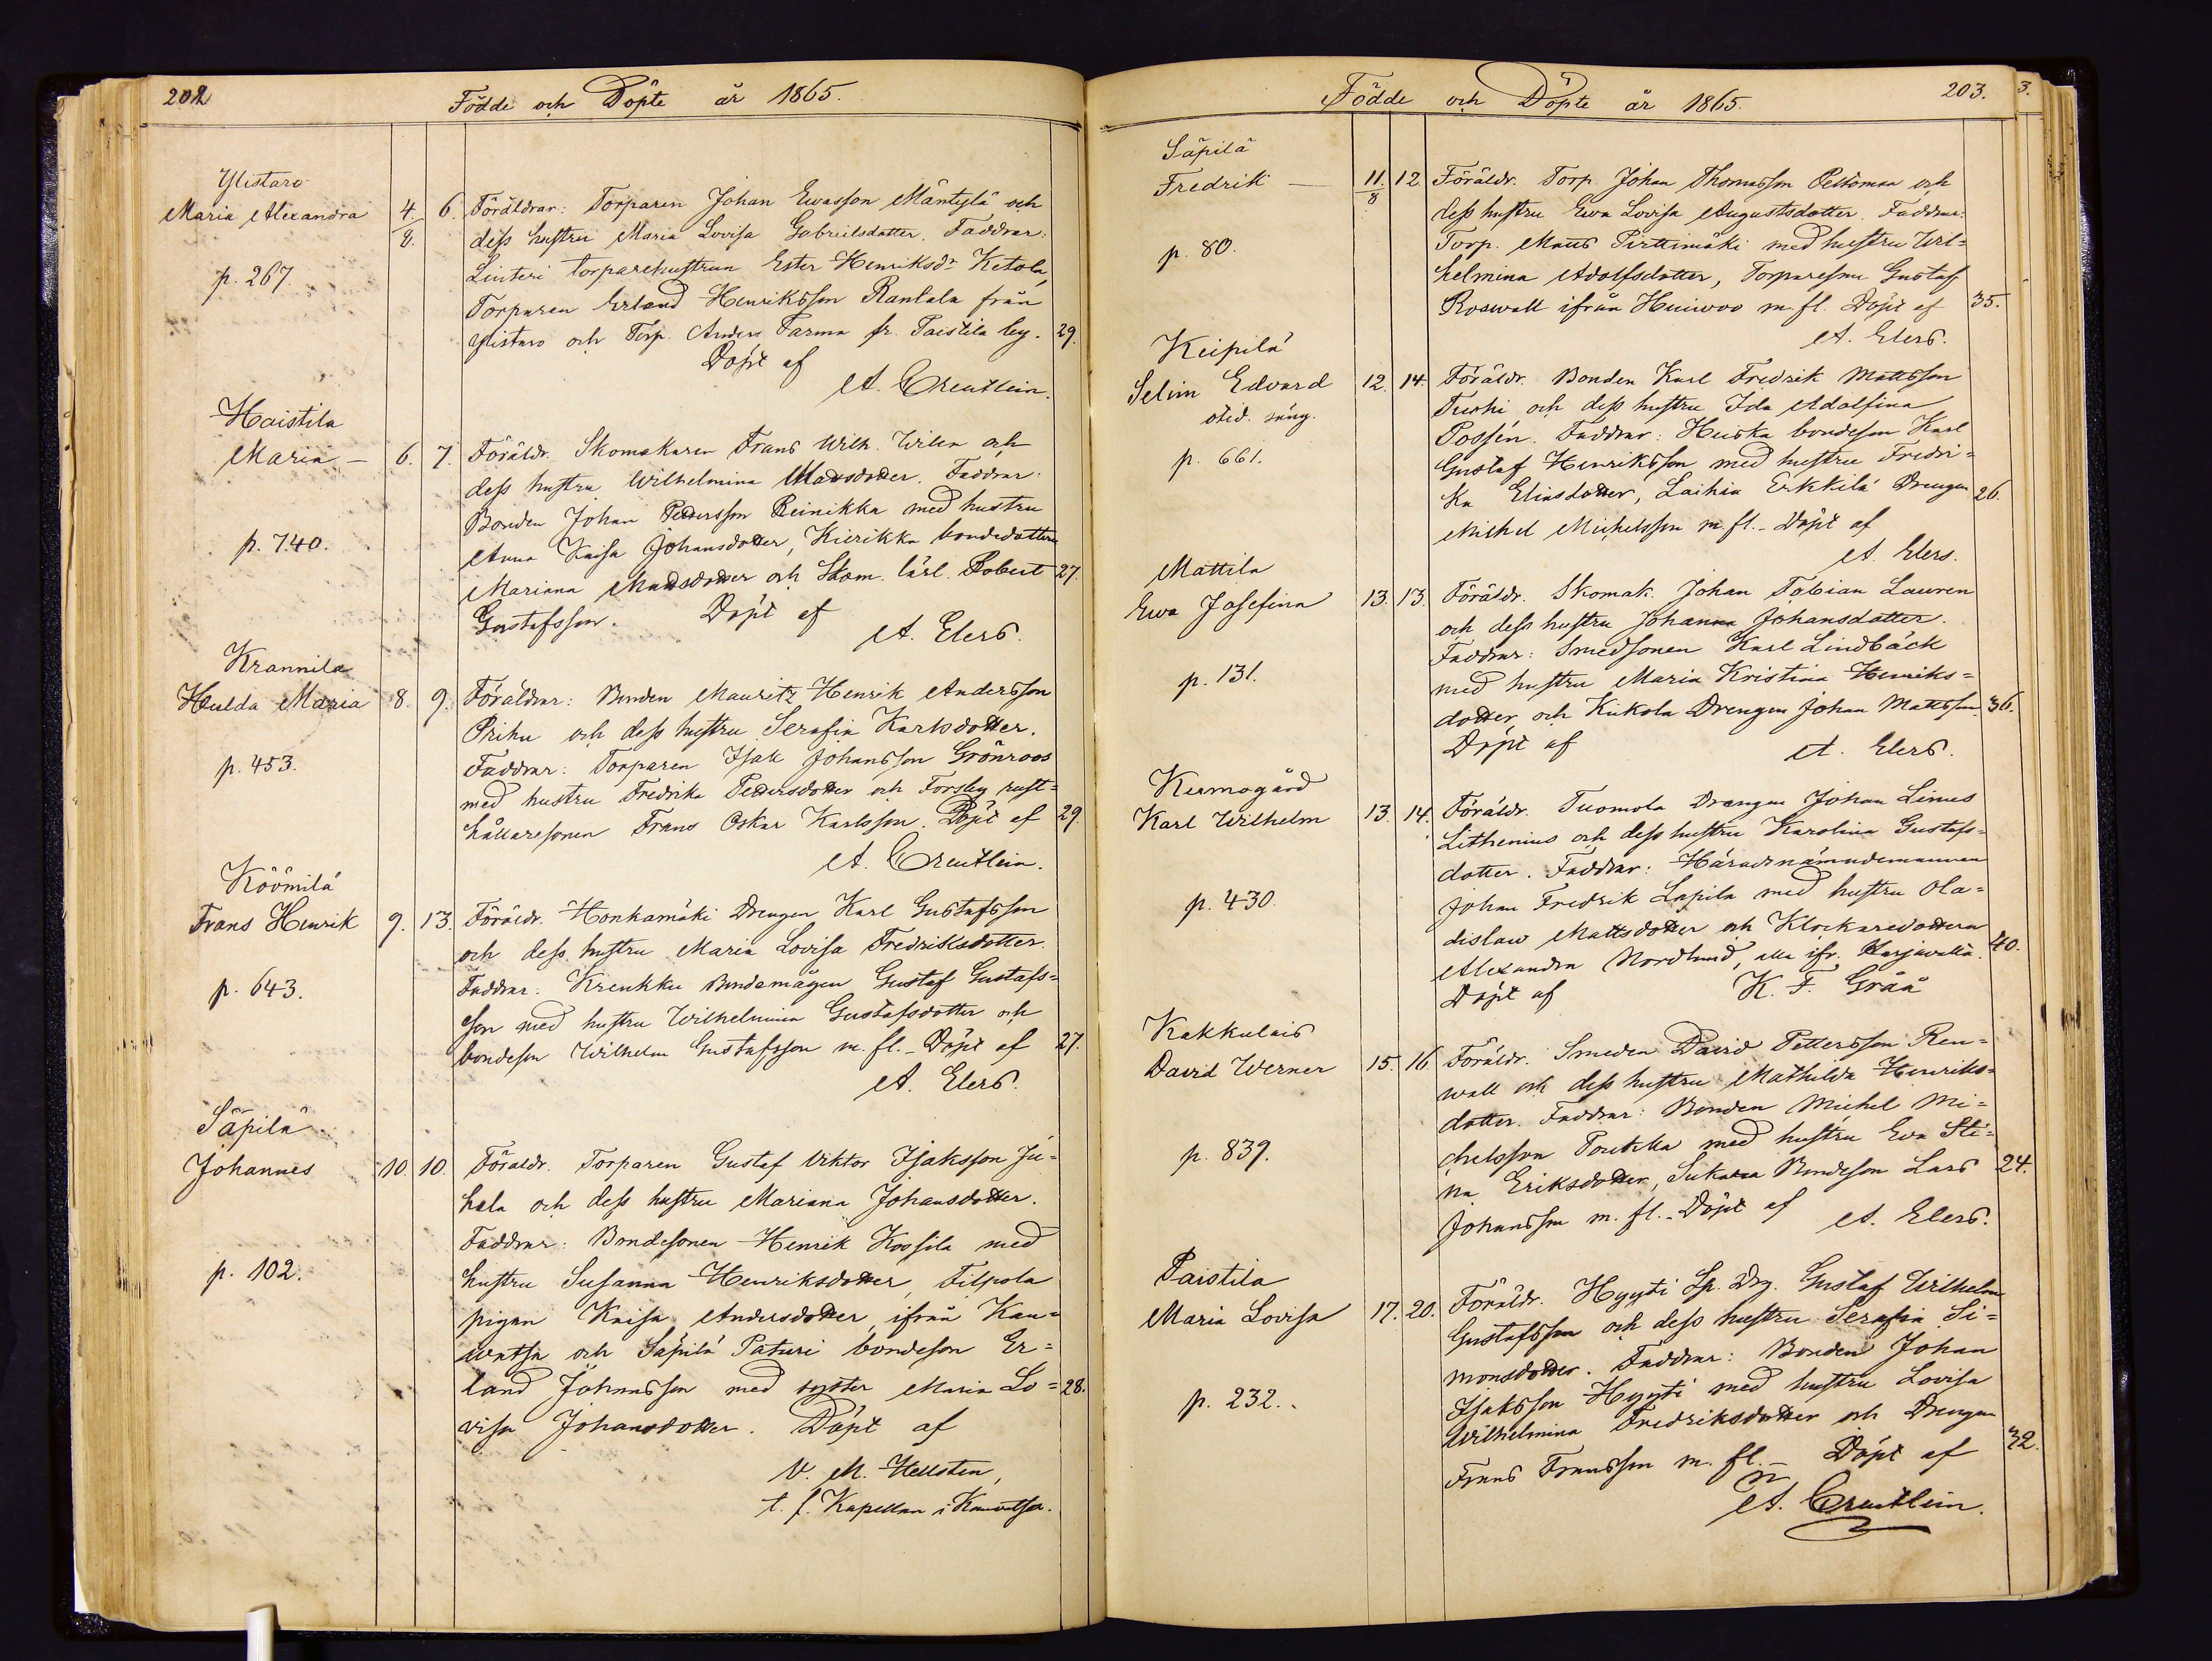 202
Födde och Döpte år 1865.
Ylistaro
Maria Alexandra
4/8.
6.
p. 267.
Föräldrar: Torparen Johan Ewasson Mäntylä och
dess hustru Maria Lovisa Gabrielsdotter. Faddrar:
Linteri torparehustrun Ester Henriksdr Ketola,
Torparen Erland Henriksson Rantala från
Ylistaro och Torp. Anders Farma fr. Paistila by.
29.
Döpt af
A. Creutlein.
Haistila
Maria —
6.
7.
p. 740.
Föräldr. Skomakaren Frans Wilh. Wilen och
dess hustru Wilhelmina Mattsdotter. Faddrar:
Bonden Johan Pettersson Reinikka med hustru
Anna Kaisa Johansdotter, Kierikka bondedottern
Mariana Mattsdotter och Skom. lärl. Robert
27.
Gustafsson. Döpt af
A. Elers.
Krannila
Hulda Maria
8.
9.
p. 453.
Föräldrar: Bonden Mauritz Henrik Andersson
Prihu och dess hustru Serafia Karlsdotter.
Faddrar: Torparen Isak Johansson Grönroos
med hustru Fredrika Pettersdotter och Forsby rust=
hållaresonen Frans Oskar Karlsson. Döpt af
29.
A. Creutlein.
Köömilä
Frans Henrik
9.
13.
p. 643.
Föräldr. Honkamäki Drengen Karl Gustafsson
och dess hustru Maria Lovisa Fredriksdotter.
Faddrar: Krenkku Bondemågen Gustaf Gustafs=
son med hustru Wilhelmina Gustafsdotter och
bondeson Wilhelm Gustafsson m. fl. – Döpt af
27.
A. Elers.
Säpilä
Johannes
10
10.
p. 102.
Föräldr. Torparen Gustaf Viktor Isaksson Ju=
hala och dess hustru Mariana Johansdotter.
Faddrar: Bondesonen Henrik Koosila med
hustru Susanna Henriksdotter, Tilpola
pigan Kaisa Andersdotter, ifrån Kau=
watsa och Säpilä Paturi bondeson Er=
land Johansson med syster Maria Lo=
28.
visa Johansdotter. Döpt af
V. M. Hellsten,
t. f. Kapellan i Kauvatsa.
203.
3.
Födde och Döpte år 1865.
Säpilä
Fredrik —
11./8
12
p. 80.
Föräldr. Torp. Johan Thomasson Peltomaa och
dess hustru Ewa Lovisa Augustsdotter. Faddrar:
Torp. Matts Pirttimäki med hustru Wil=
helmina Adolfsdotter, Torparesonen Gustaf
Roswall ifrån Huiwoo m. fl. Döpt af
35.
A. Elers.
Keipilä
Selim Edvard
otid. säng.
12.
14.
p. 661.
Föräldr. Bonden Karl Fredrik Mattsson
Tuohi och dess hustru Ida Adolfina
Possén. Faddrar: Heiska bondeson Karl
Gustaf Henriksson med hustru Fredri=
ka Eliasdotter, Laihia Erkkilä Drengen
26.
Michel Michelsson m. fl. – Döpt af
A. Elers.
Mattila
Ewa Josefina
13.
13.
p. 131.
Föräldr. Skomak. Johan Tobian Lauren
och dess hustru Johanna Johansdotter.
Faddrar: Smedsonen Karl Lindbäck
med hustru Maria Kristina Henriks=
dotter och Kukola Drengen Johan Mattsson.
36.
Döpt af
A. Elers.
Kurmogård
Karl Wilhelm
13.
14.
p. 430.
Föräldr. Tuomola Drengen Johan Linus
Lithenius och dess hustru Karolina Gustafs=
dotter. Faddrar: Häradsnämndemannen
Johan Fredrik Lapila med hustru Ola=
dislaw Mattsdotter och Klockaredottern
Alexandra Nordlund, alla ifr. Harjavalta.
40.
Döpt af
K. F. Gråå
Kakkulais
David Werner
15.
16.
p. 839.
Föräldr. Smeden David Pettersson Ren=
wall och dess hustru Mathilda Henriks=
dotter. Faddrar: Bonden Michel Mi=
chelsson Poutikka med hustru Eva Sti=
na Eriksdotter, Sukataa Bondeson Lars
24.
Johansson m. fl. – Döpt af
A. Elers.
Paistila
Maria Lovisa
17.
20.
p. 232.
Föräldr. Hyyti Sp. Drg. Gustaf Wilhelm
Gustafsson och dess hustru Serafia Si=
monsdotter. Faddrar: Bonden Johan
Isaksson Hyyti med hustru Lovisa
Wilhelmina Fredriksdotter och Drengen
Frans Fransson m. fl. – Döpt af
32.
A. Creutlein.